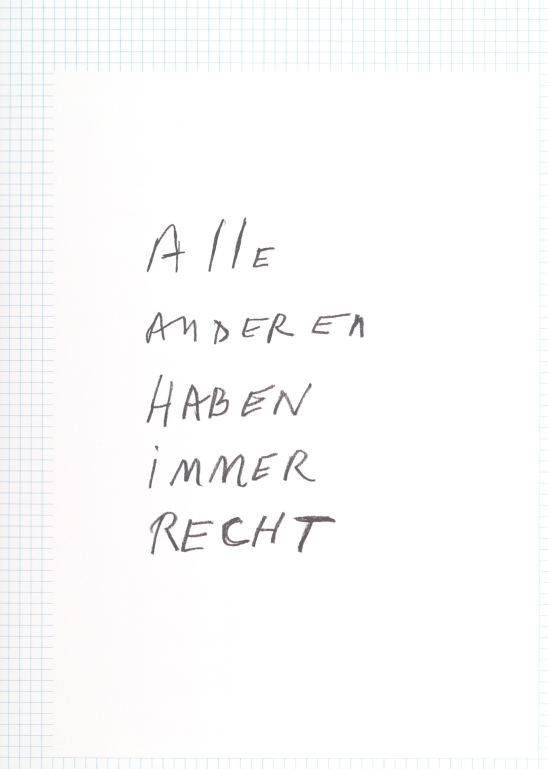 Alle
ANDEREN
HABEN
iMMER
RECHT